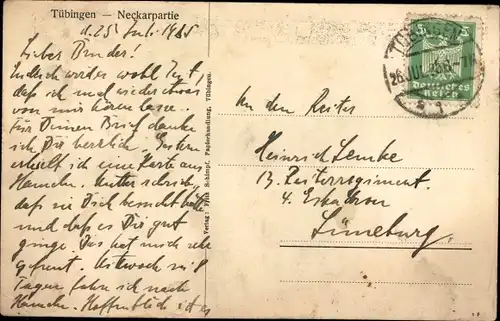 Tübingen — Neckarpartie
d. 25 Juli 1925
Lieber Bruder!
Endlich werde wohl Zeit,
daß ich mal wieder etwas
von mir hören lasse.
Für Deinen Brief danke
ich Dir herzlich. Gestern
erhielt ich eine Karte aus
Hameln. Mutter schrieb,
daß sie Dich besucht hätte
und daß es Dir gut
ginge. Das hat mich sehr
gefreut. Mittwoch in 8
Tagen fahre ich nach
Hameln. Hoffentlich ist es
Verlag: Fritz Schimpf, Papierhandlung, Tübingen.
TÜBINGEN
26 JUL 25 6-7N
Deutsches
Reich
5
An den Reiter
Heinrich Lemke
13. Reiterregiment
4. Eskadron
Lüneburg.